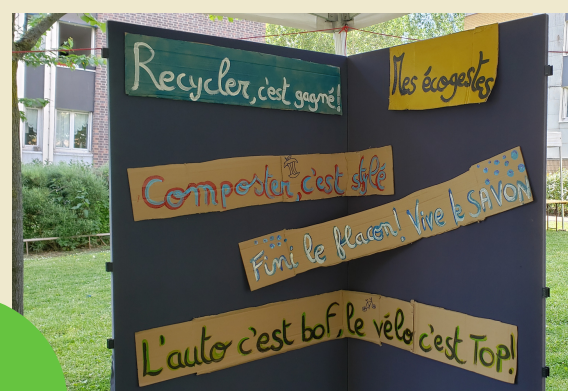 Recycler, c'est gagné!
Mes écogestes
Composter, c'est stylé
Fini le flacon! Vive le SAVON
L'auto c'est bof, le vélo c'est Top!